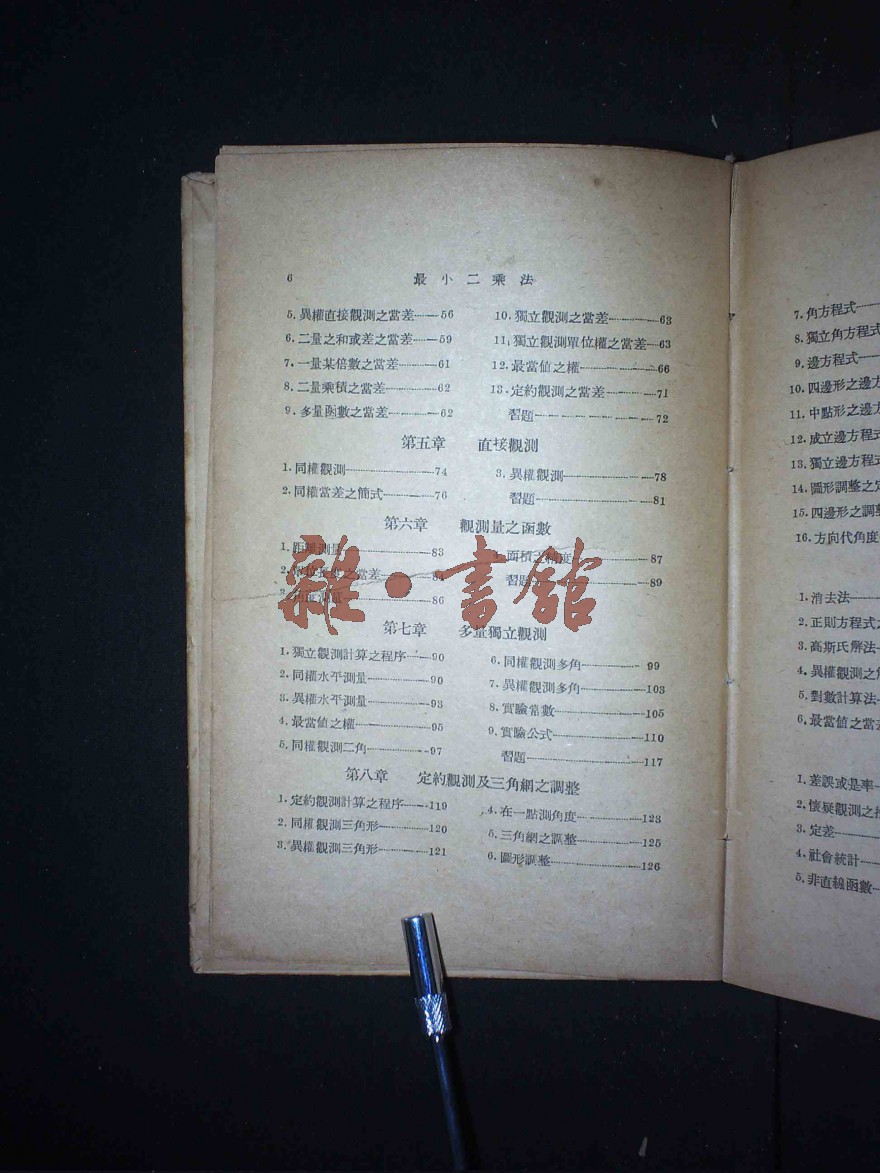 6
最小二乘法
5. 異權直接觀測之當差 56
6. 二量之和或差之當差 59
7. 一量某倍數之當差 61
8. 二量乘積之當差 62
9. 多量函數之當差 62
10. 獨立觀測之當差 63
11. 獨立觀測單位權之當差 63
12. 最當值之權 66
13. 定約觀測之當差 71
習題 72
第五章 直接觀測
1. 同權觀測 74
2. 同權當差之簡式 76
3. 異權觀測 78
習題 81
第六章 觀測量之函數
1. 距離測量 83
2. 之當差 84
3. 86
面積之 度 87
習題 89
雜·書館
第七章 多量獨立觀測
1. 獨立觀測計算之程序 90
2. 同權水平測量 90
3. 異權水平測量 93
4. 最當值之權 95
5. 同權觀測二角 97
6. 同權觀測多角 99
7. 異權觀測多角 103
8. 實驗常數 105
9. 實驗公式 110
習題 117
第八章 定約觀測及三角網之調整
1. 定約觀測計算之程序 119
2. 同權觀測三角形 120
3. 異權觀測三角形 121
4. 在一點測角度 123
5. 三角網之調整 125
6. 圖形調整 126
7. 角方程式
8. 獨立角方程式
9. 邊方程式
10. 四邊形之邊方
11. 中點形之邊方
12. 成立邊方程式
13. 獨立邊方程式
14. 圖形調整之
15. 四邊形之調整
16. 方向代角度
1. 消去法
2. 正則方程式之
3. 高斯氏解法
4. 異權觀測之
5. 對數計算法
6. 最當值之當差
1. 差誤或是率
2. 懷疑觀測之
3. 定差
4. 社會統計
5. 非直線函數